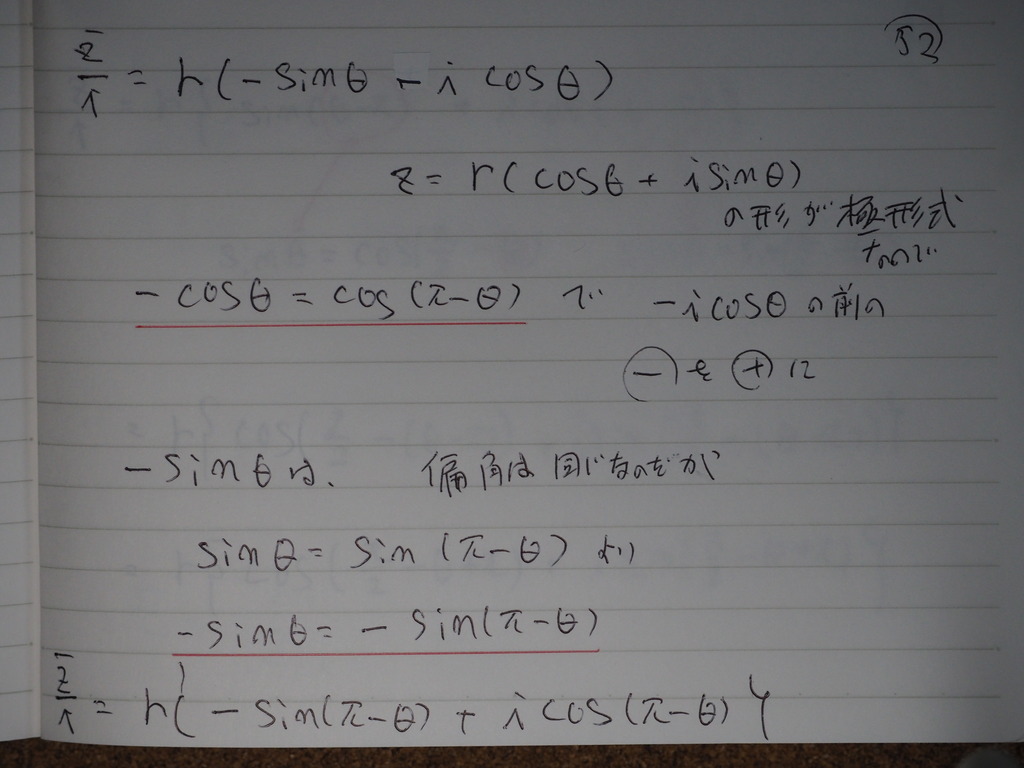 52
z̄/i = r(-sinθ - i cosθ)
z = r(cosθ + i sinθ)
の形が極形式
なので
-cosθ = cos(π-θ) で -i cosθ の前の
⊖を⊕に
-sinθは、 偏角は同じなのだが
sinθ = sin(π-θ) より
-sinθ = - sin(π-θ)
z̄/i = r{ - sin(π-θ) + i cos(π-θ) }